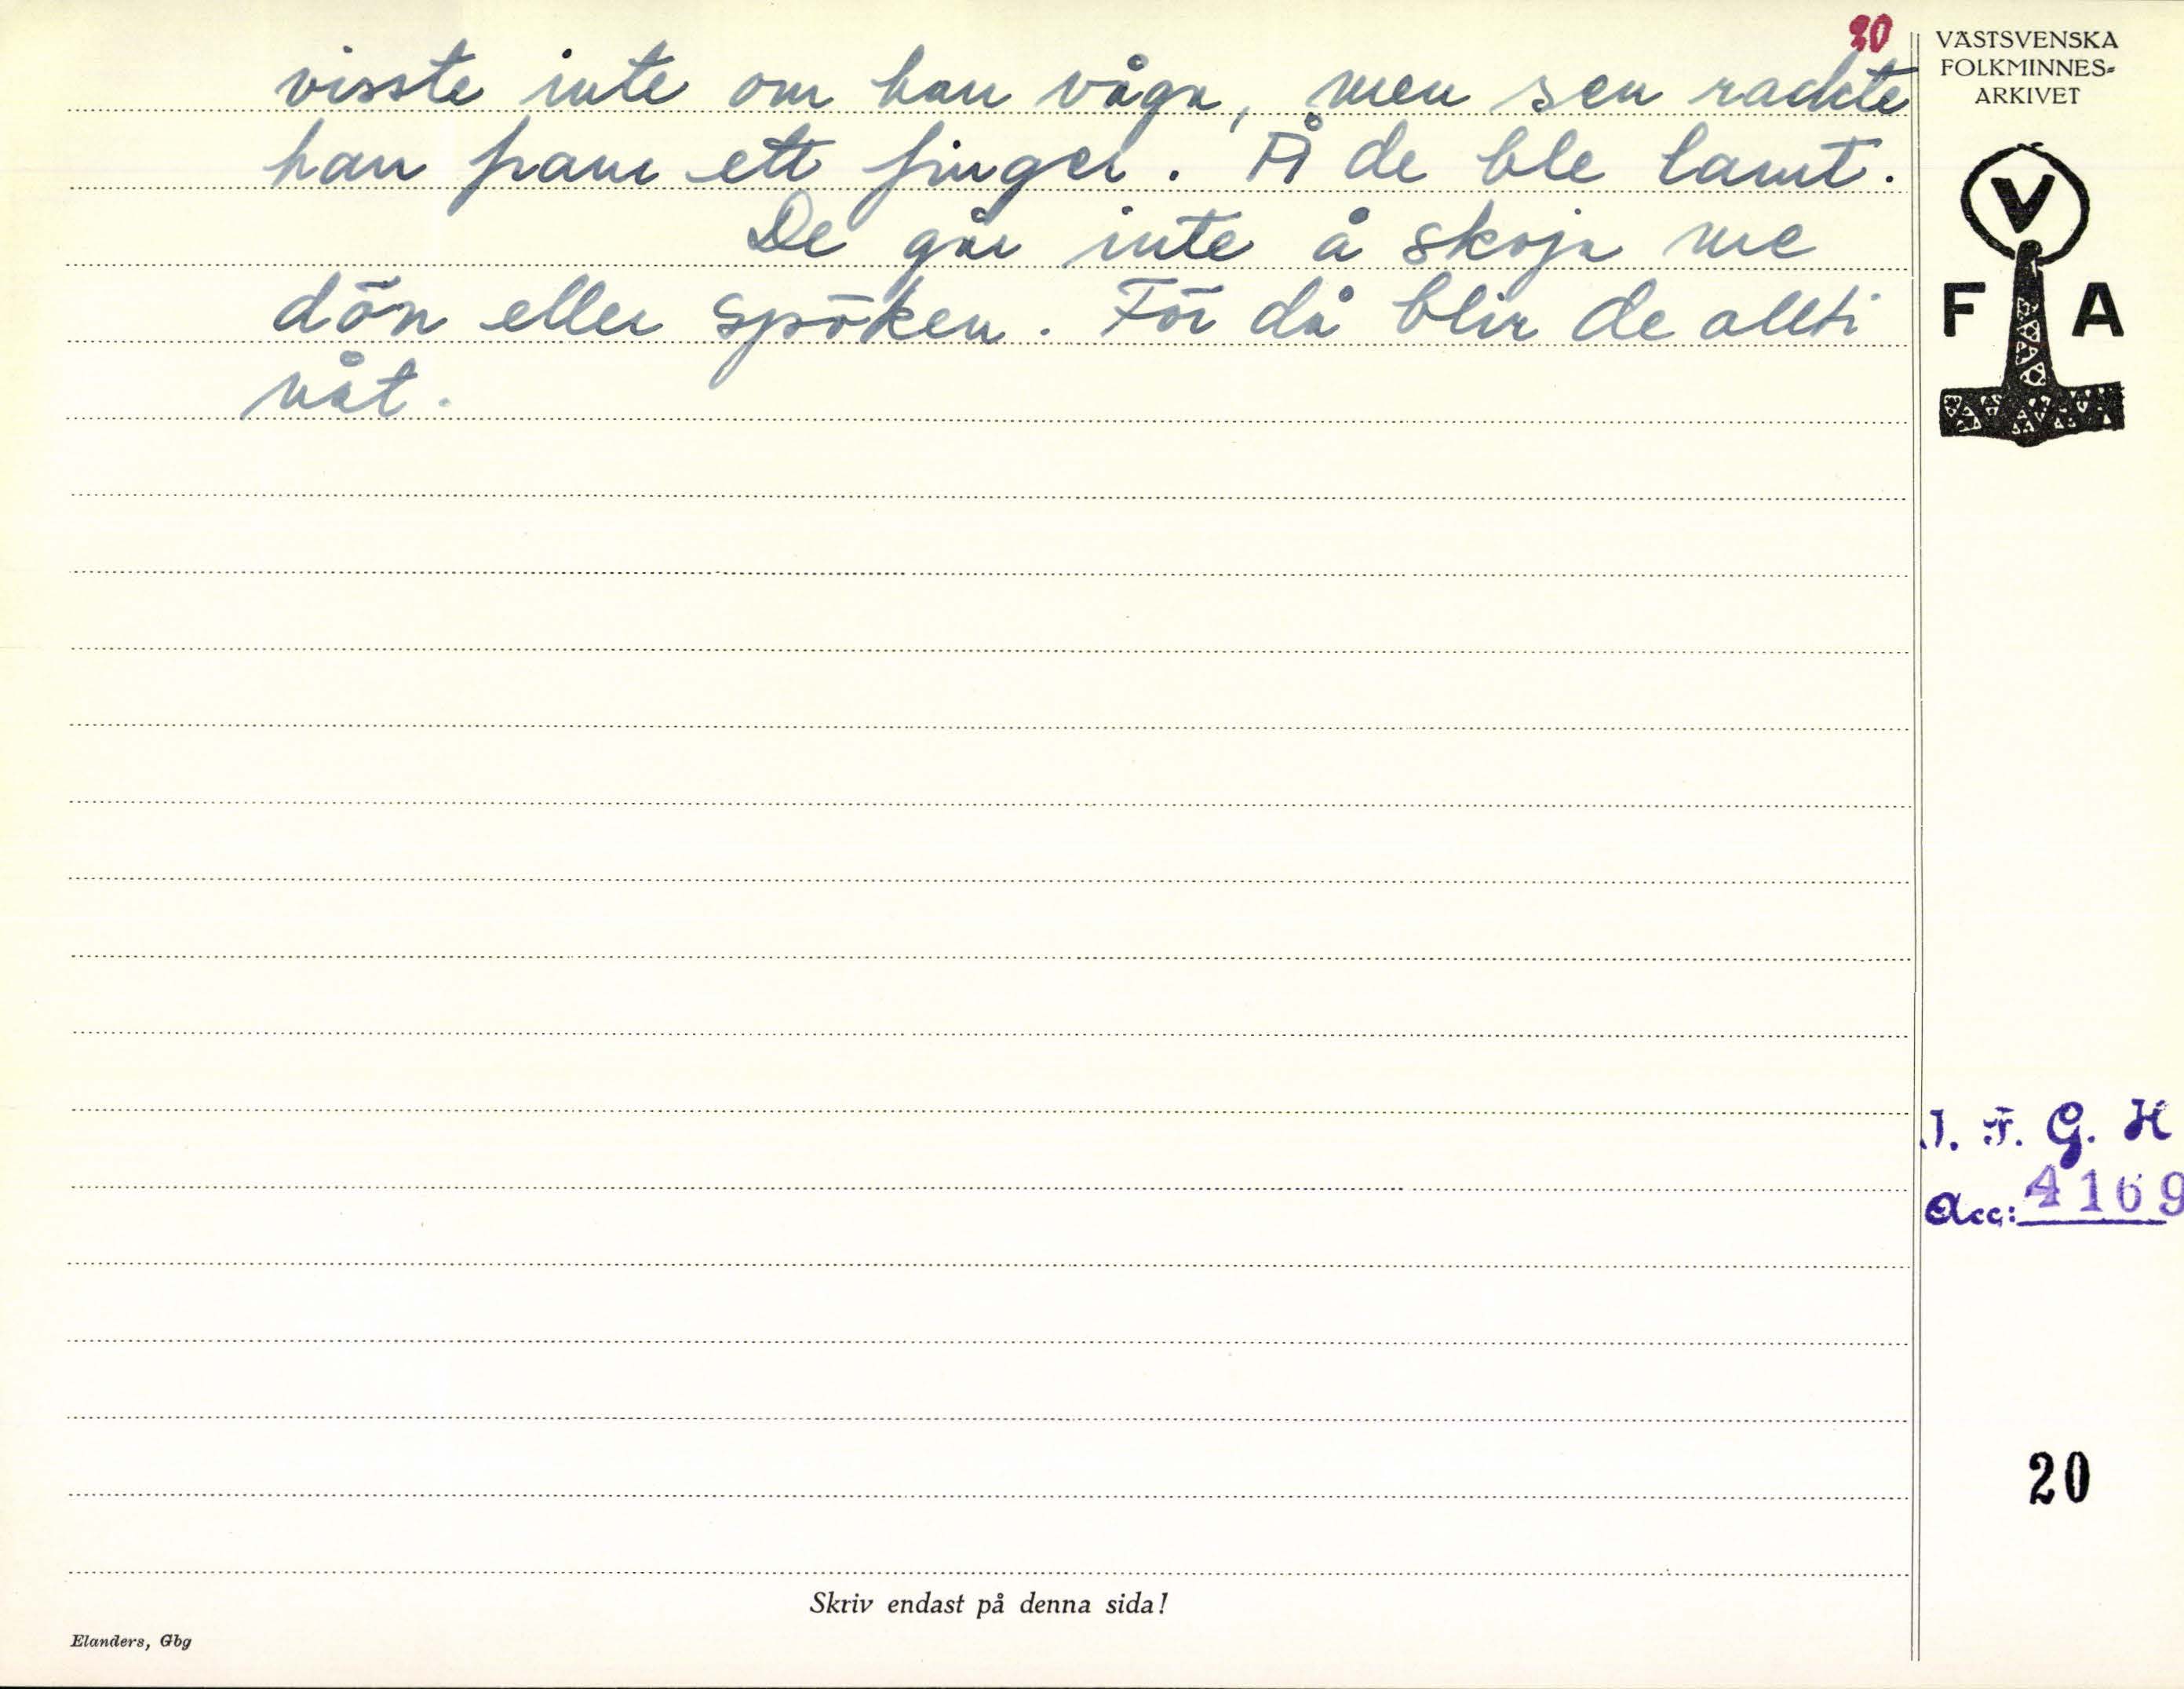 20
visste inte om han våga, men sen rackte
han fram ett finger. Å de ble lamt.
De går inte å skoja me
dön eller spöken. För då blir de allti
nåt.
VÄSTSVENSKA
FOLKMINNES-
ARKIVET
V
F A
I. F. G. H
Acc: 4169
20
Skriv endast på denna sida!
Elanders, Gbg